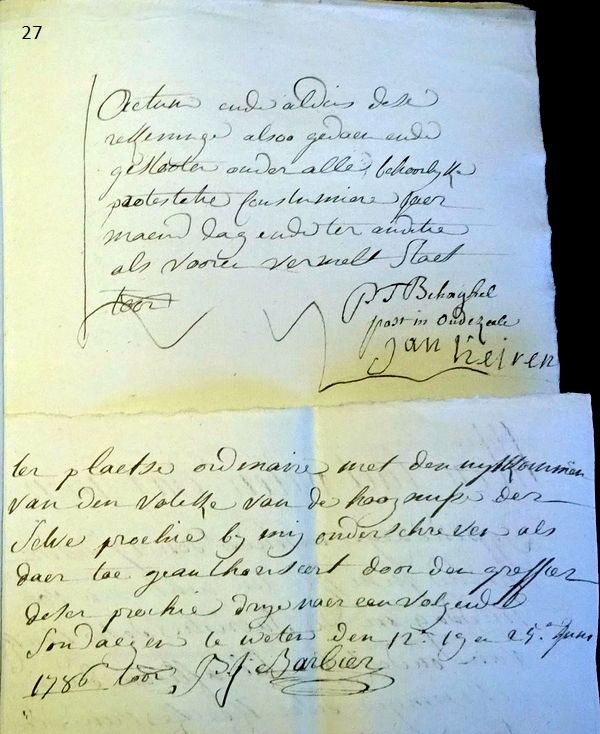 27
Actum ende aldus dese
rekeninge alsoo gedaen ende
geslooten onder alle behoorlyke
protestatie Coustumiere Jaer
maend dag ende ter
als vooren vermelt staet
toor
P J Behaghel
past in oudezeele
Jan
ter plaetse ordinaire met den uytkommen
van den volcke van de hoogmisse der
selve prochie by mij onderschreven als
daer toe geauthoriseert door den greffier
deser prochie drye naer een volgende
sondaegen te weten den 12.n 19 en 25.en Juni
1786 toor, P.J. Barbier